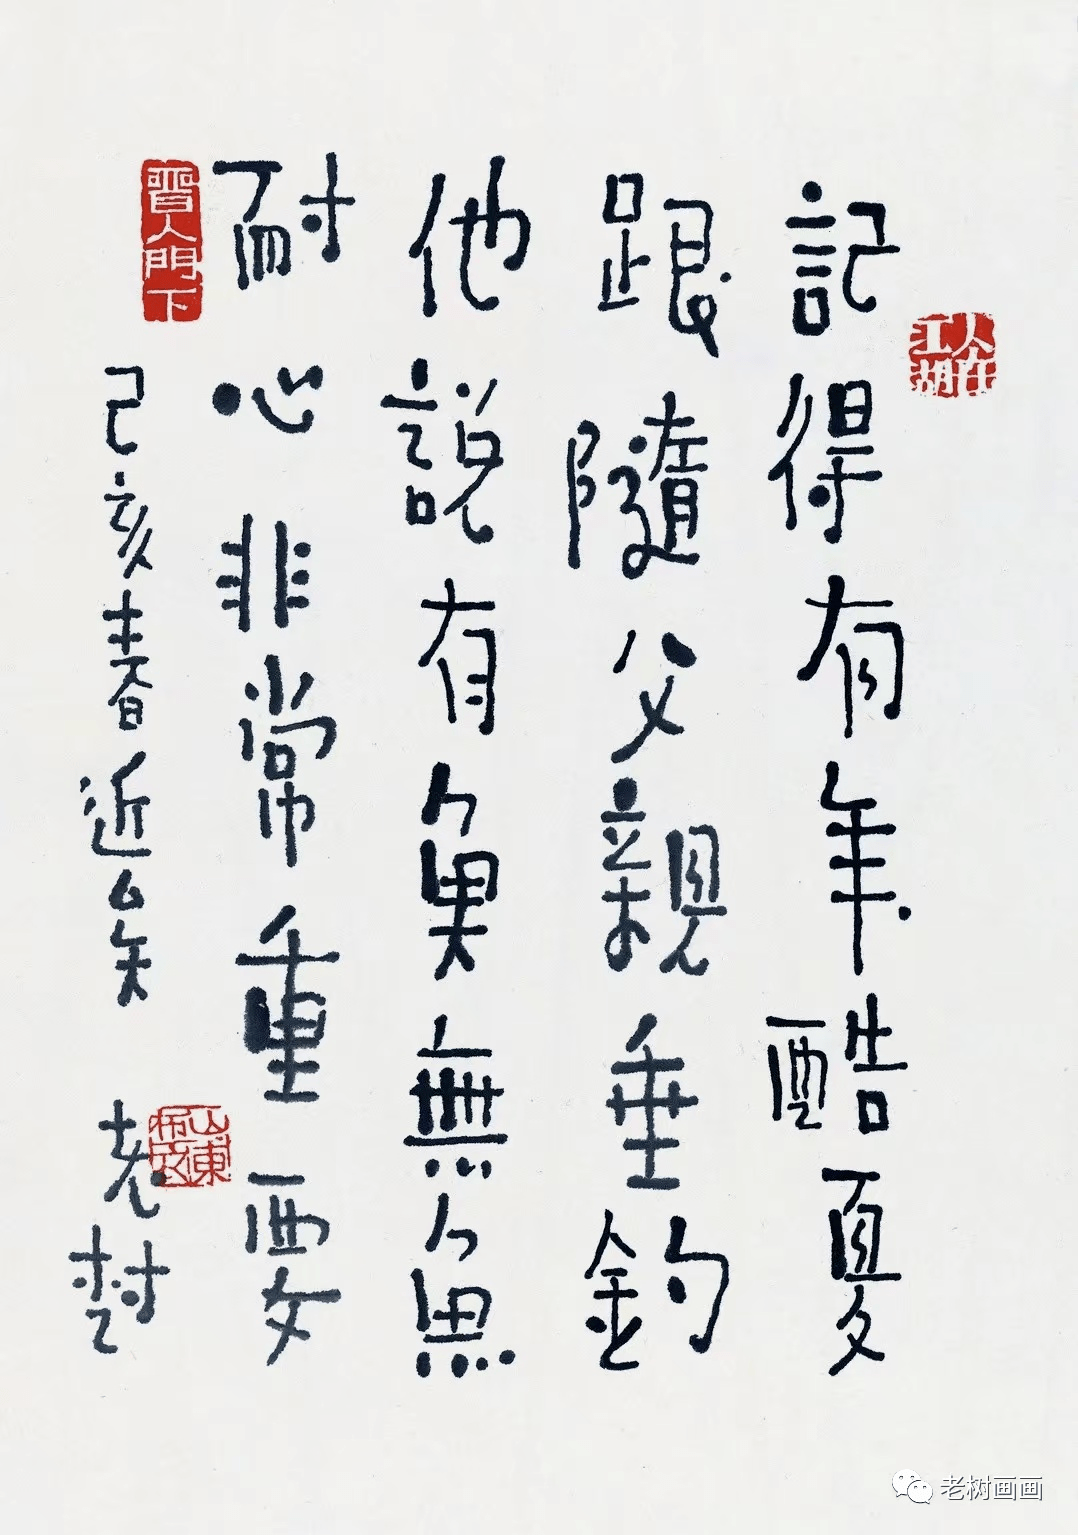 人在江湖
記得有年酷夏
跟隨父親垂釣
他說有魚無魚
耐心非常重要
晋人門下
己亥春近矣
老樹
山東
老树画画